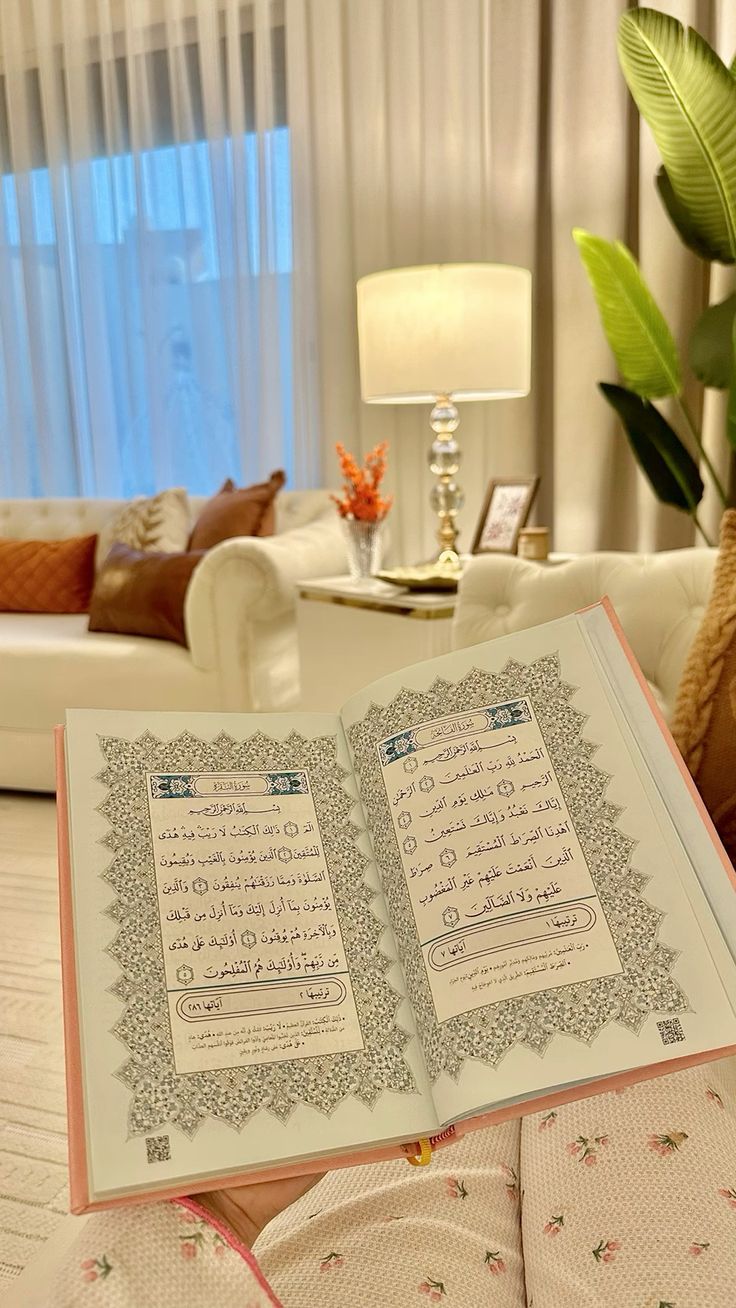 سُورَةُ الفَاتِحَةِ
بِسْمِ اللَّهِ الرَّحْمَٰنِ الرَّحِيمِ ١
الْحَمْدُ لِلَّهِ رَبِّ الْعَالَمِينَ ٢ الرَّحْمَٰنِ
الرَّحِيمِ ٣ مَالِكِ يَوْمِ الدِّينِ ٤
إِيَّاكَ نَعْبُدُ وَإِيَّاكَ نَسْتَعِينُ ٥
اهْدِنَا الصِّرَاطَ الْمُسْتَقِيمَ ٦ صِرَاطَ
الَّذِينَ أَنْعَمْتَ عَلَيْهِمْ غَيْرِ الْمَغْضُوبِ
عَلَيْهِمْ وَلَا الضَّالِّينَ ٧
ترتيبها ١
آياتها ٧
سُورَةُ البَقَرَةِ
بِسْمِ اللَّهِ الرَّحْمَٰنِ الرَّحِيمِ
الٓمٓ ١ ذَٰلِكَ الْكِتَابُ لَا رَيْبَ فِيهِ هُدًى
لِّلْمُتَّقِينَ ٢ الَّذِينَ يُؤْمِنُونَ بِالْغَيْبِ وَيُقِيمُونَ
الصَّلَوٰةَ وَمِمَّا رَزَقْنَاهُمْ يُنفِقُونَ ٣ وَالَّذِينَ
يُؤْمِنُونَ بِمَا أُنزِلَ إِلَيْكَ وَمَا أُنزِلَ مِن قَبْلِكَ
وَبِالْآخِرَةِ هُمْ يُوقِنُونَ ٤ أُولَٰئِكَ عَلَىٰ هُدًى
مِّن رَّبِّهِمْ وَأُولَٰئِكَ هُمُ الْمُفْلِحُونَ ٥
ترتيبها ٢ آياتها ٢٨٦